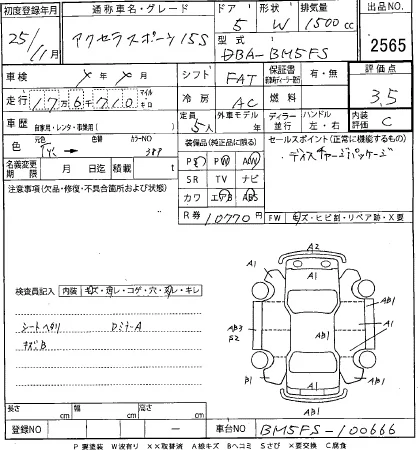 初度登録年月 通称車名・グレード ドア 形状 排気量 出品NO
25/11月 アクセラスポーツ 15S 5 W 1500cc 2565
型式 DBA-BM5FS
車検 シフト FAT 保証書 有・無 評価点 3.5
走行 17万6千710 マイル キロ 冷房 AC 燃料
車歴 自家用・レンタ・事業用( ) 定員 5人 外車モデル 年 ディーラー 並行 ハンドル 左・右 内装評価 C
色 色替 カラーNO 389
装備品(純正品に限る) セールスポイント(正常に機能するもの)
PS PW AW ディスチャージパッケージ
名義変更期限 月 日迄 積載 t SR TV ナビ
注意事項(欠品・修復・不具合箇所および状態) カワ エアB ABS
R券 10770円 FW キズ・ヒビ割・リペア跡・X要
A2
A1 A1 A1
検査員記入 内装 キズ・汚レ・コゲ・穴・スレ・キレ
シートヘタリ DミラーA
キズB
AB3 B2 AB1 A1
B1 AB1 A1
AB1
長さ cm 幅 cm 高さ cm
登録NO 車台NO BM5FS-100666
P要塗装 W波有り XX取替済 A線キズ Bヘコミ Sさび X要交換 C腐食